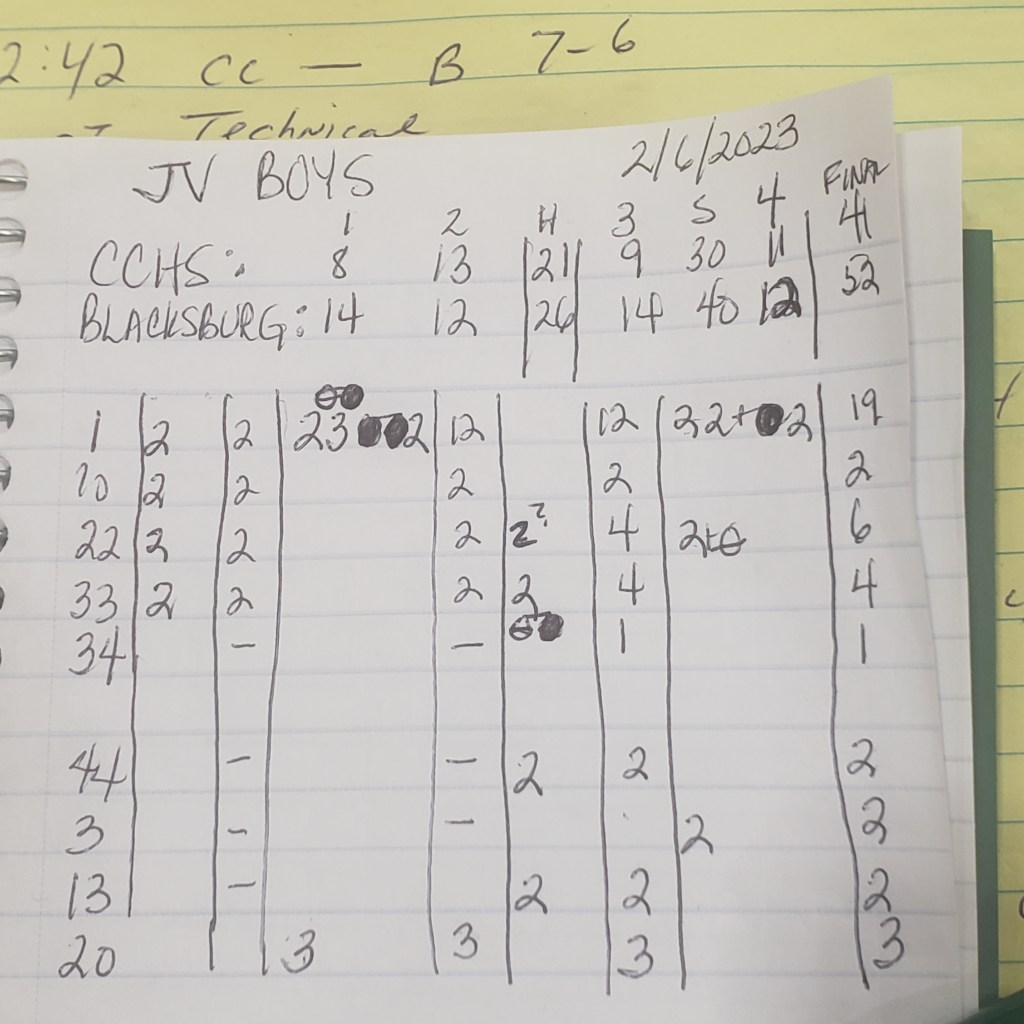 2:42 CC — B 7-6
Technical
JV BOYS 2/6/2023
1 2 H 3 S 4 FINAL
CCHS: 8 13 21 9 30 11 41
BLACKSBURG: 14 12 26 14 40 12 52
1 2 2 23 2 12 12 22+ 2 19
10 2 2 2 2 2
22 2 2 2 2? 4 2+ 6
33 2 2 2 2 4 4
34 - - 1 1
44 - - 2 2 2
3 - - 2 2
13 - 2 2 2
20 3 3 3 3